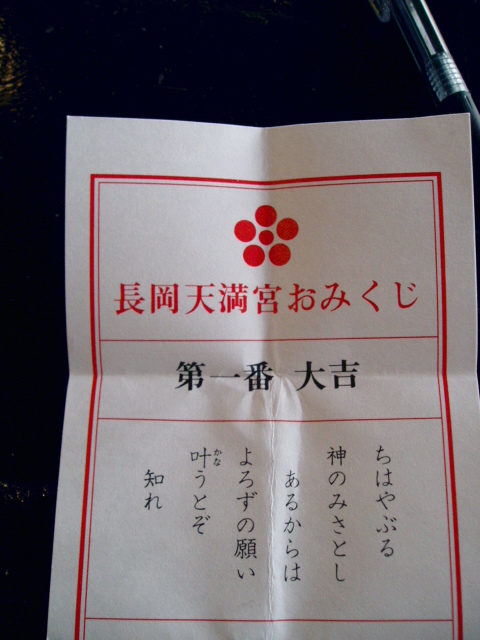 長岡天満宮おみくじ
第一番 大吉
ちはやぶる
神のみさとし
あるからは
よろずの願い
叶うとぞ
かな
知れ